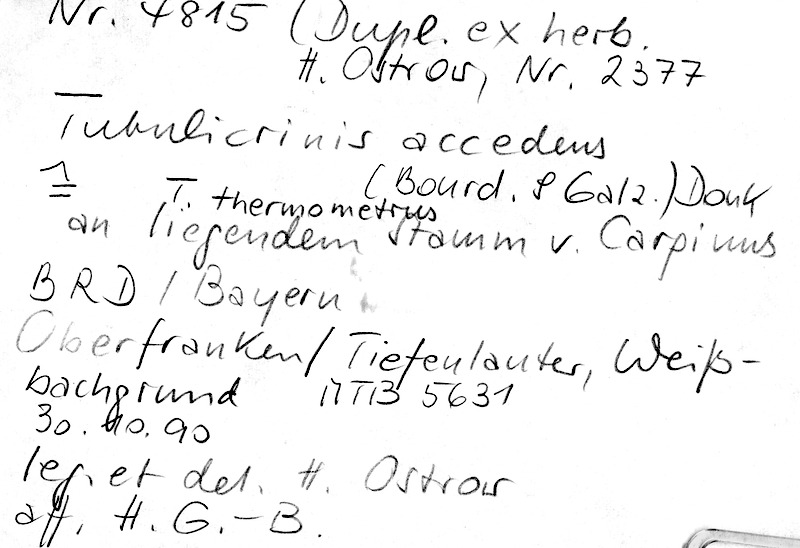 Nr. 4815 (Dupl. ex herb.
H. Ostrow, Nr. 2377
Tubulicrinis accedens
(Bourd. & Galz.) Donk
= T. thermometrus
an liegendem Stamm v. Carpinus
BRD / Bayern
Oberfranken / Tiefenlauter, Weiß-
bachgrund MTB 5631
30.10.90
leg. et det. H. Ostrow
aff. H. G.-B.